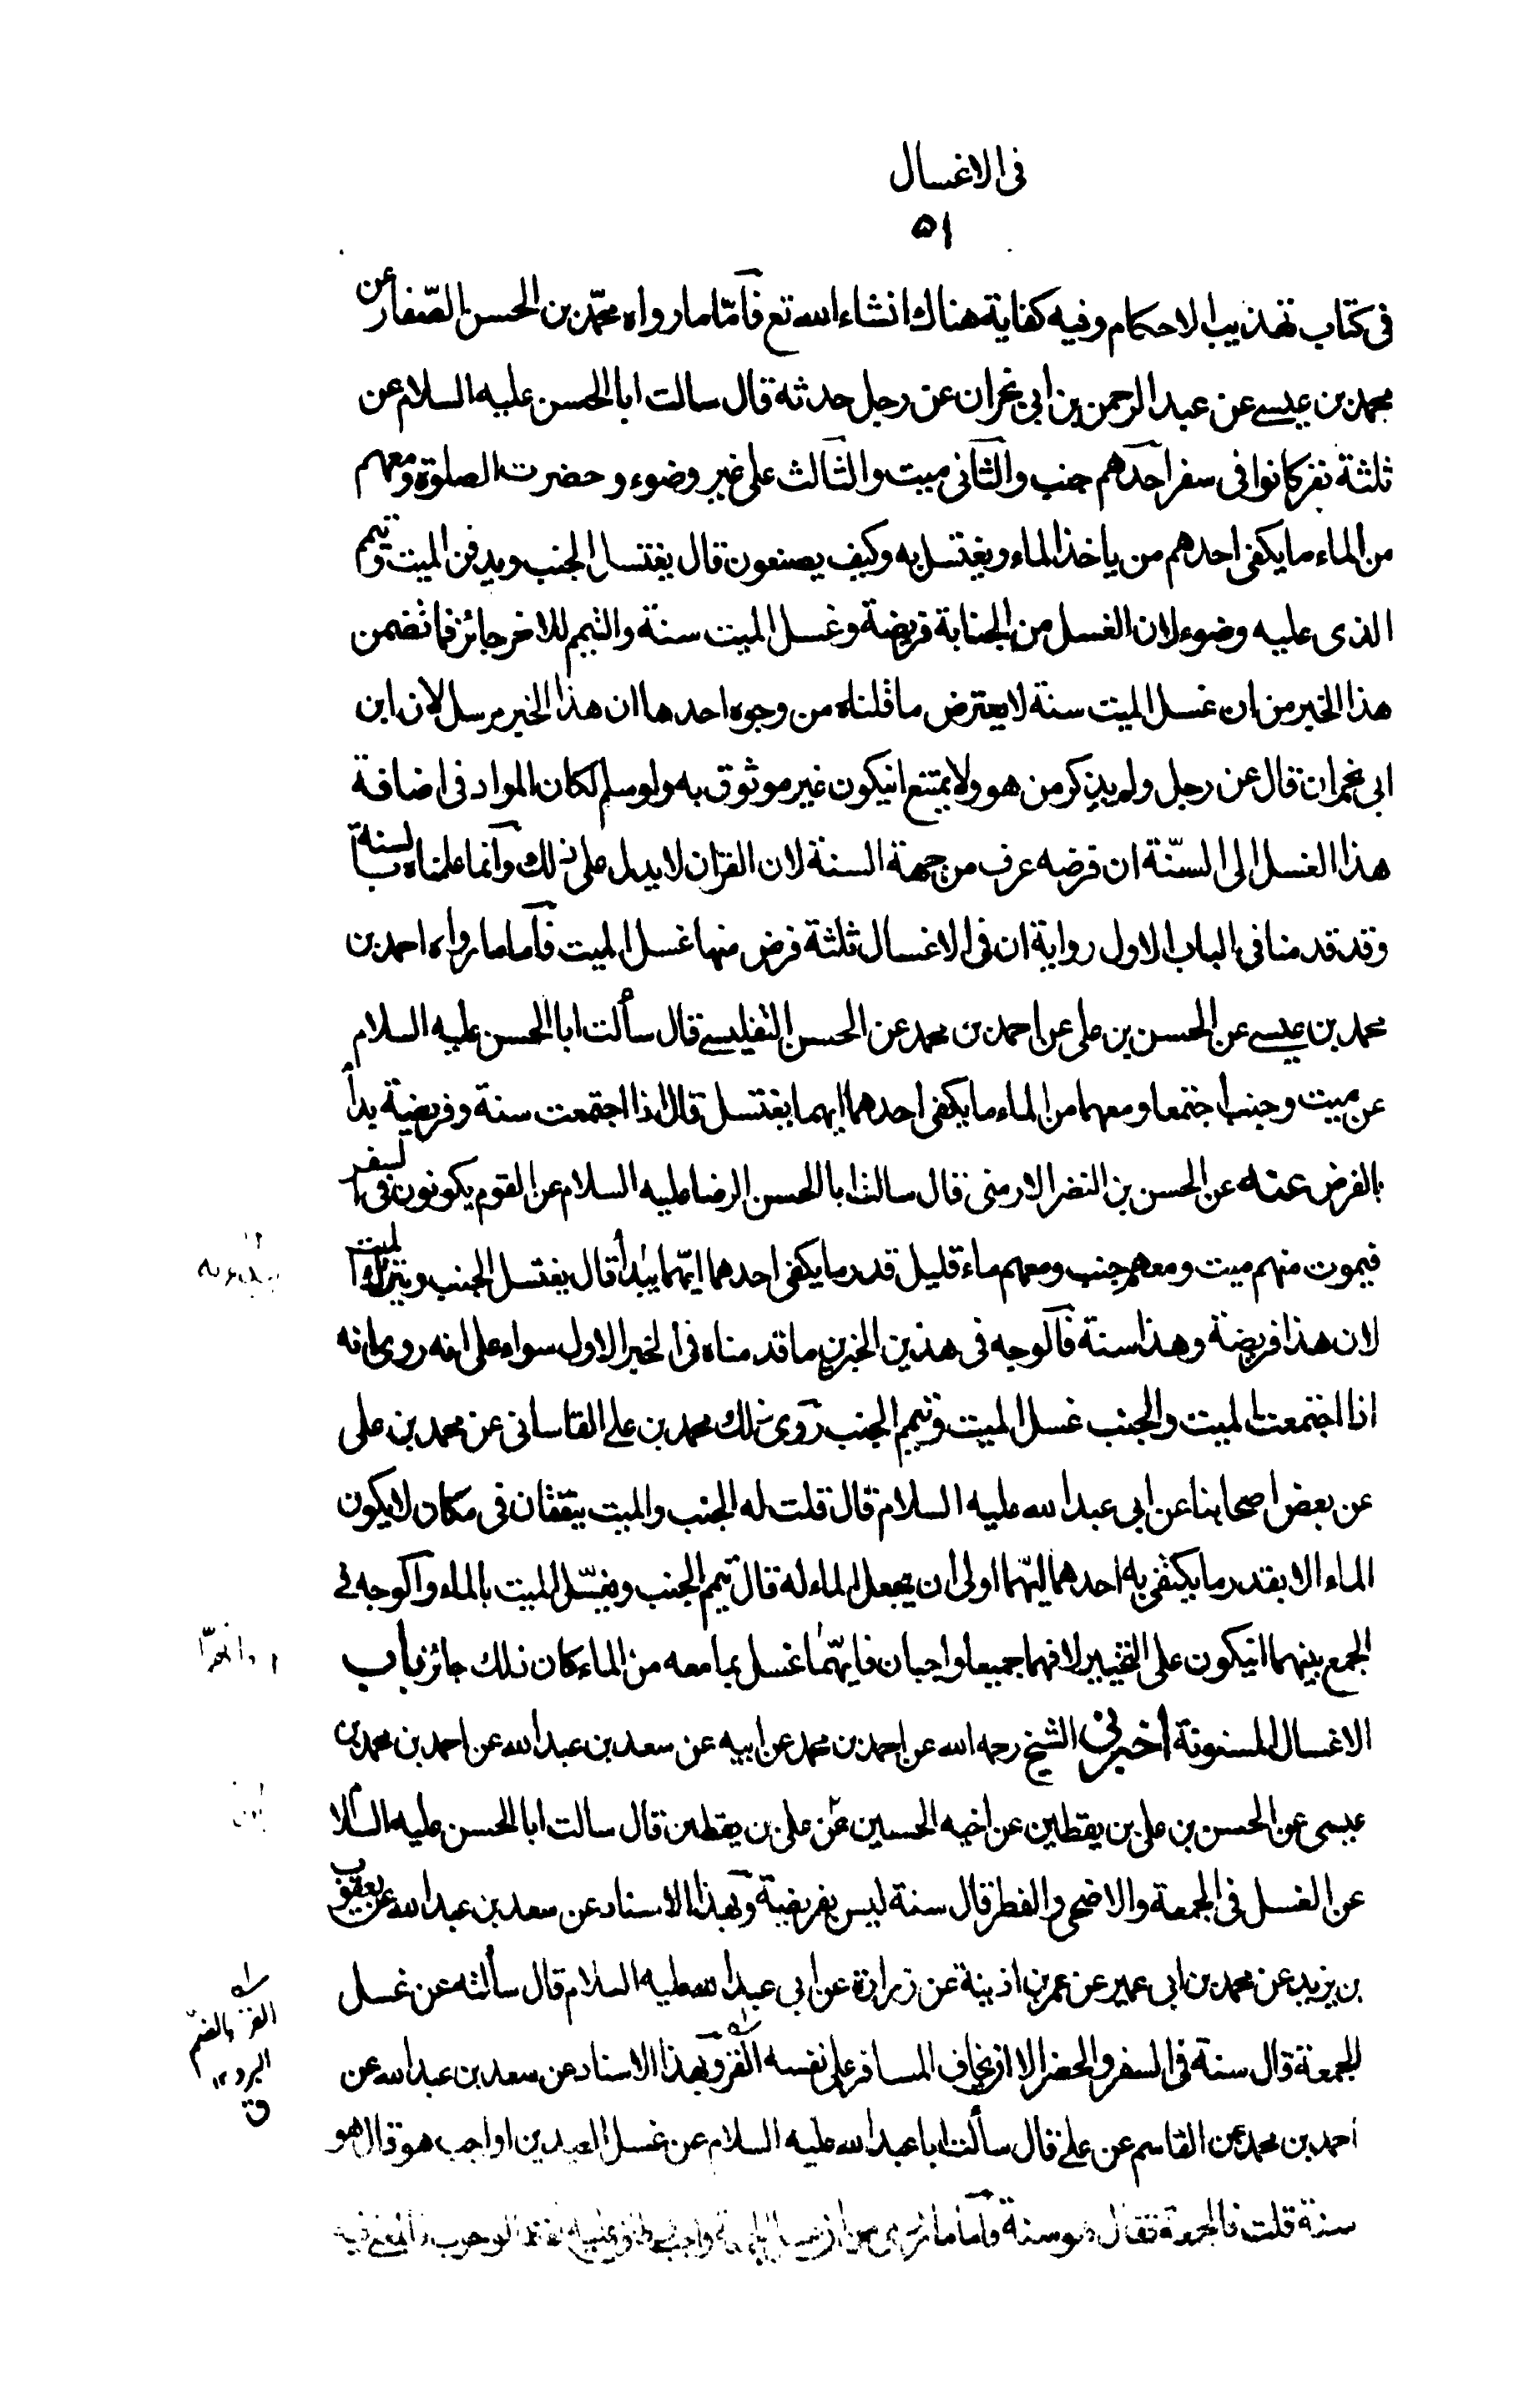 فى الاغسال
۵۱
فى كتاب تهذيب الاحكام وفيه كفاية هناك انشاء الله تع فاّما ما رواه محمّد بن الحسن الصّفار عن
محمد بن عيسى عن عبد الرحمن بن ابى نجران عن رجل حدثه قال سالت ابا الحسن عليه السلام عن
ثلثة نفر كانوا فى سفر احدهم جنب والثانى ميت والثالث على غير وضوء و حضرت الصلوة ومعهم
من الماء ما يكفى احدهم من ياخذ الماء ويغتسل به وكيف يصنعون قال يغتسل الجنب ويدفن الميت وتيمم
الذى عليه وضوء لان الغسل من الجنابة فريضة وغسل الميت سنة والتيمم للاخر جائز فما تضمن
هذا الخبر من ان غسل الميت سنة لا يعترض ما قلناه من وجوه احدها ان هذا الخبر مرسل لان ابن
ابى نجران قال عن رجل ولم يذكر من هو ولا يمتنع انيكون غير موثوق به ولو سلم لكان المراد فى اضافة
هذا الغسل الى السّنة ان فرضه عرف من جهة السنة لان القران لا يدل على ذلك وانما علمناه بالسنة
وقد قدمنا فى الباب الاول رواية ان فى الاغسال ثلثة فرض منها غسل الميت فاما ما رواه احمد بن
محمد بن عيسى عن الحسن بن على عن احمد بن محمد عن الحسن التفليسى قال سألت ابا الحسن عليه السلام
عن ميت وجنب اجتمعا ومعهما من الماء ما يكفى احدهما ايهما يغتسل قال اذا اجتمعت سنة وفريضة بدأ
بالفرض عنه عن الحسن بن النضر الارمنى قال سالت ابا الحسن الرضا عليه السلام عن القوم يكونون فى السفر
فيموت منهم ميت ومعهم جنب ومعهم ماء قليل قدر ما يكفى احدهما ايّهما يبدأ قال يغتسل الجنب ويترك الميت
لان هذا فريضة وهذا سنة فالوجه فى هذين الخبرين ما قدمناه فى الخبر الاول سواء على انه روى انه
اذا اجتمعت الميت والجنب غسل الميت وتيمم الجنب روى ذلك محمد بن على القاسانى عن محمد بن على
عن بعض اصحابنا عن ابى عبد الله عليه السلام قال قلت له الجنب والميت يتفقان فى مكان لا يكون
الماء الا بقدر ما يكتفى به احدهما ايّهما اولى ان يجعل الماء له قال تيمم الجنب ويغسّل الميت بالماء والوجه فى
الجمع بينهما انيكون على التخيير لانهما جميعا واجبان فايهّما غسل بما معه من الماء كان ذلك جائز باب
الاغسال المسنونة أخبرنى الشيخ رحمه الله عن احمد بن محمد عن ابيه عن سعد بن عبد الله عن احمد بن محمد بن
عيسى عن الحسن بن على بن يقطين عن اخيه الحسين عن على بن يقطين قال سالت ابا الحسن عليه السلا
عن الغسل فى الجمعة والاضحى والفطر قال سنة ليس بفريضة وبهذا الاسناد عن سعد بن عبد الله عن يعقوب
بن يزيد عن محمد بن ابى عمير عن عمر بن اذينة عن زرارة عن ابى عبد الله عليه السلام قال سألته عن غسل
الجمعة قال سنة فى السفر والحضر الا ان يخاف المسافر على نفسه القر وبهذا الاسناد عن سعد بن عبد الله عن
القر بالضم
البرد ١٢
ق
احمد بن محمد عن القاسم عن على قال سألت ابا عبد الله عليه السلام عن غسل العيدين اواجب هو قال هو
سنة قلت فالجمعة فقال هو سنة واما ما